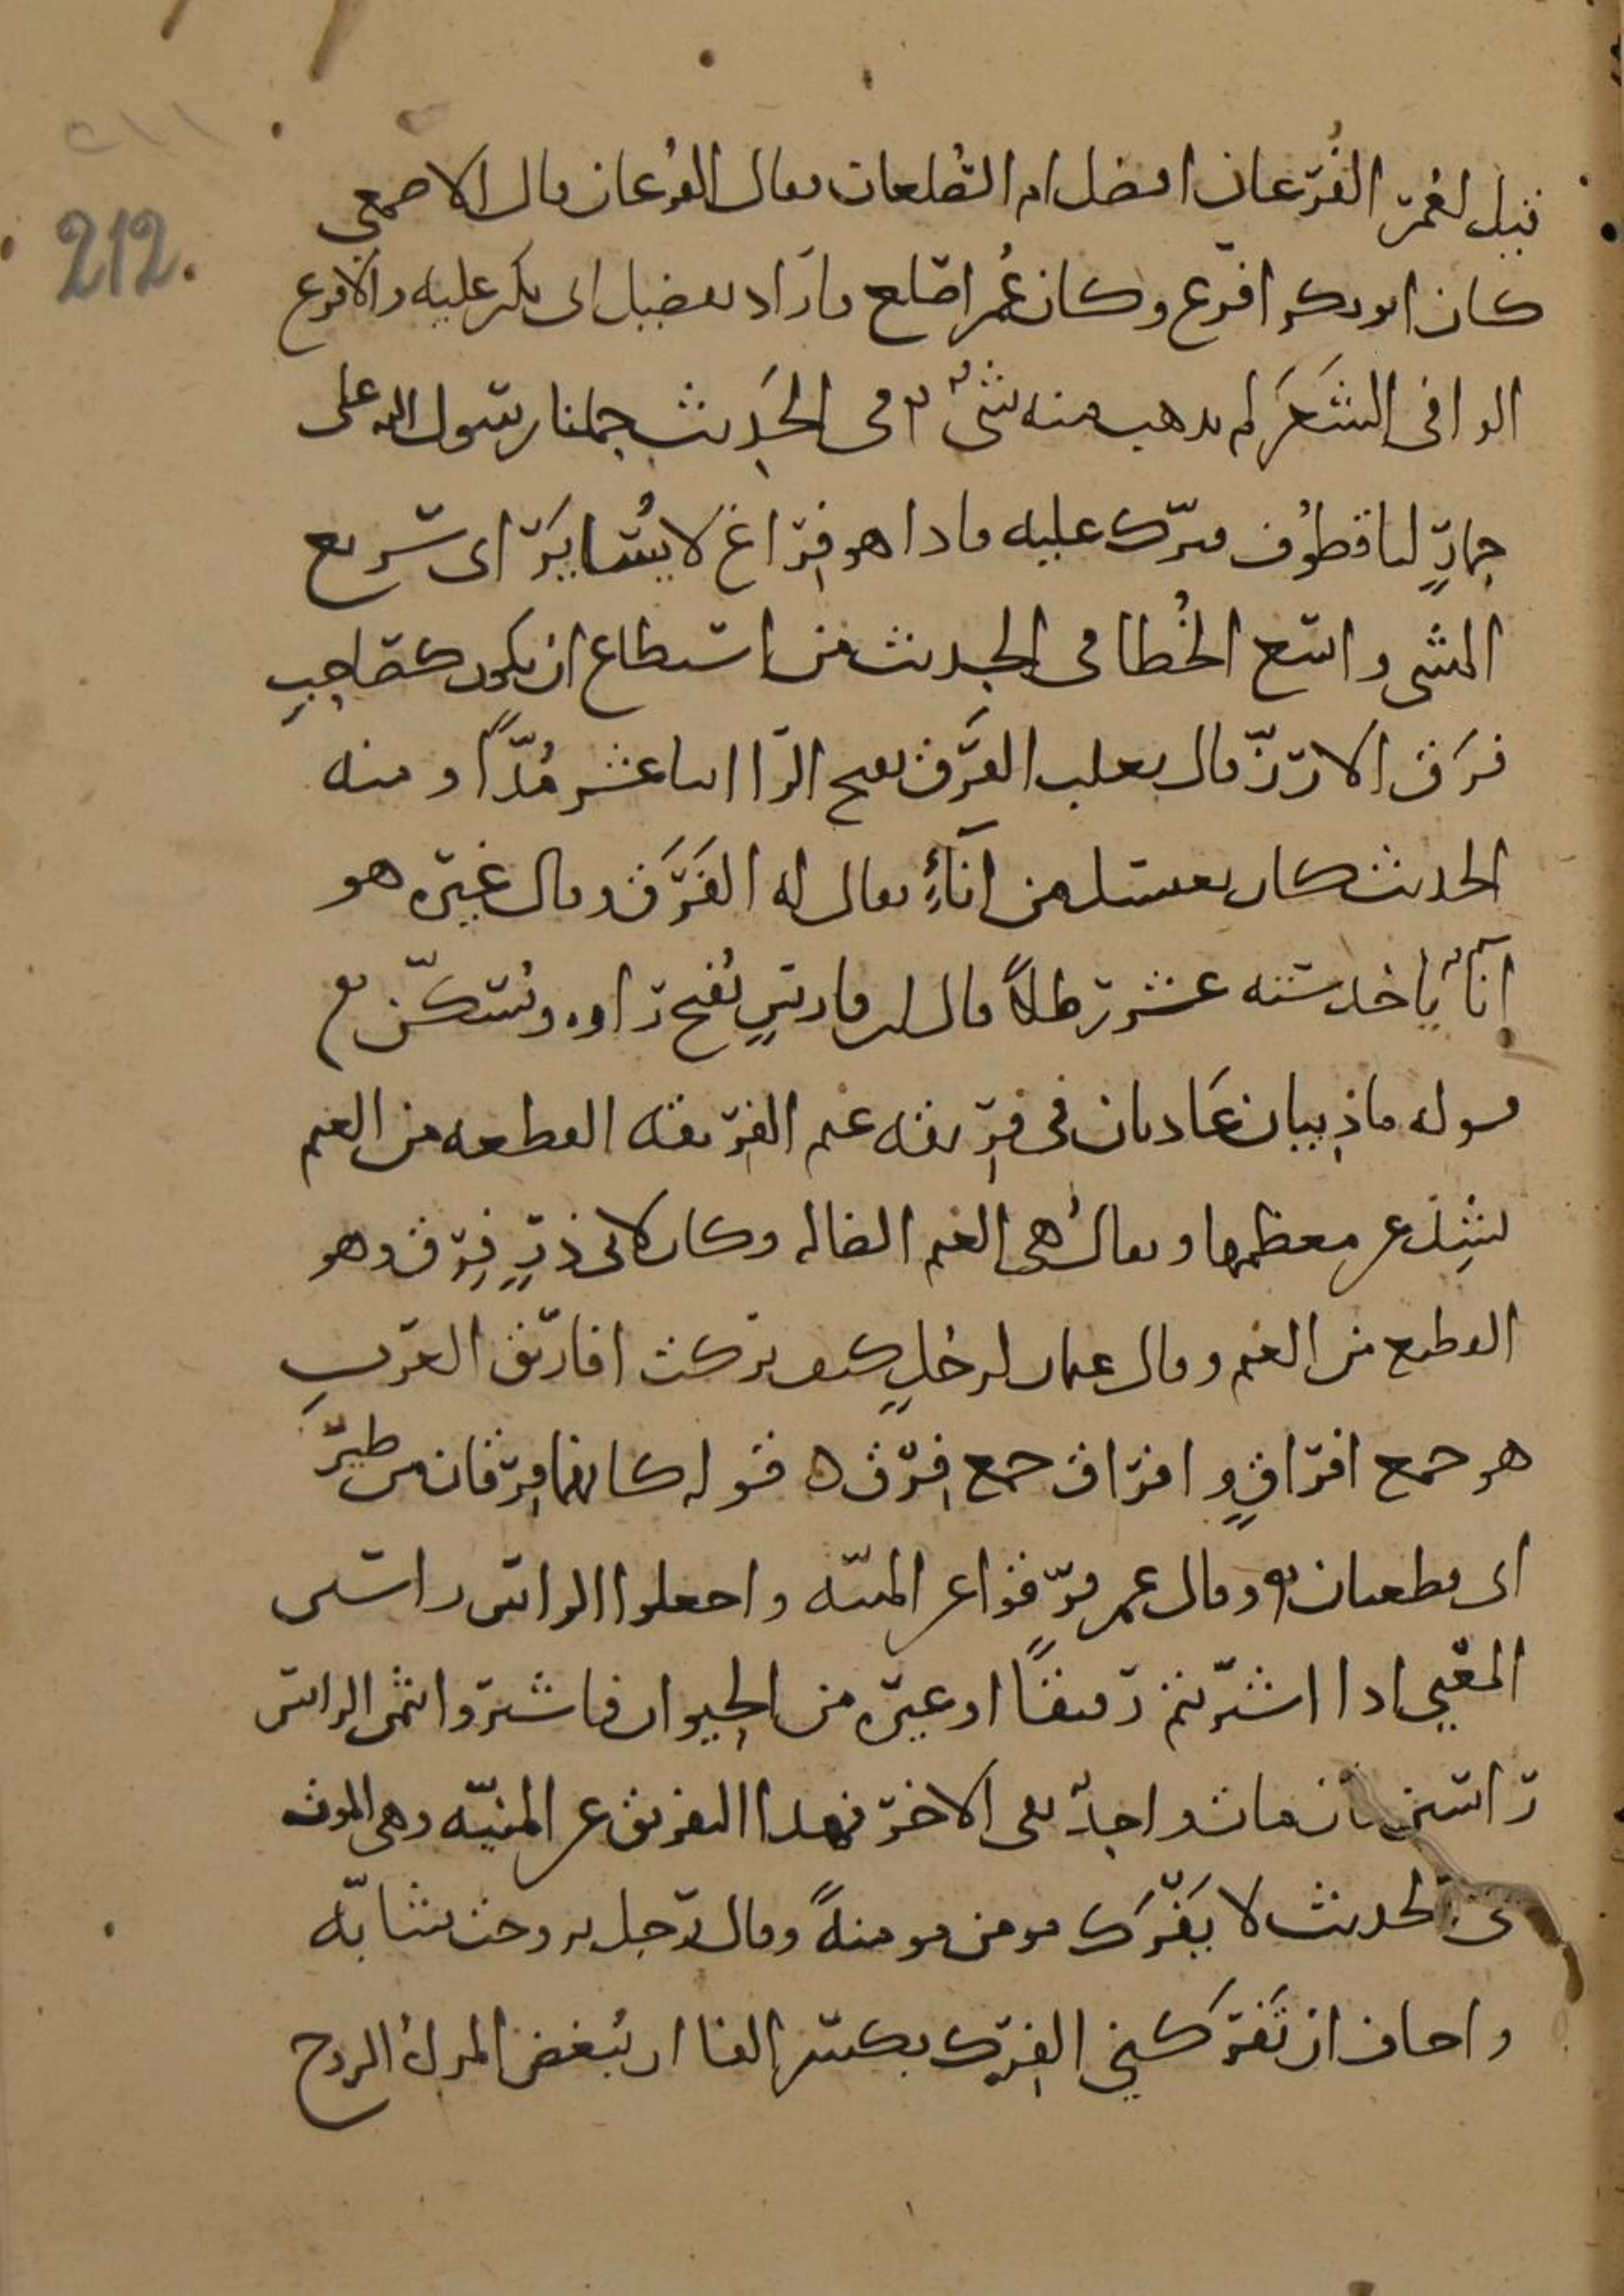 ٢١١
212.
قيل لعُمَر الفُرعان افضل ام الصُلعان فقال الفُرعان قال الاصمعي
كان ابو بكر افرع وكان عُمر اصلع فاراد تفضيل ابي بكر عليه والافرع
الوافي الشَعَر لم يذهب منه شيٌ في الحَديث حملنا رسول الله على
حمارٍ لنا قطوُف فنزل عليه فاذا هو فِراغ لا يُسايَر اي سَريع
المشي واسع الخُطا في الحديث من استطاع ان يكون كصاحبِ
فرَق الارُزّ قال ثعلب الفَرَق بفتح الرا اثنا عشر مُدًّا ومنه
الحديث كان يغتسل من اناءٍ يقال له الفَرَق وقال غيره هو
اناٌ ياخذ ستة عشر رطلاً قال ابن فارس تُفتح راوه وتُسكّن
قوله ماذِيبان عَاديان في فرِيقه غنم الفِريقه القطعه من الغنم
تشِذ عن معظمها ويقالُ هي الغنم الضاله وكان لابي ذرٍ فِرق وهو
القطيع من الغنم وقال عثمان لرجُلٍ كيف تركت افاريق العَربِ
هو جمع افراقٍ وافراق جمع فِرق ه قوله كانهما فِرقان من طيرٍ
اي قطعتان ه وقال عمر فرّقوا عن المنيّه واجعلوا الراس راسين
المعني اذا اشتريتم رقيقًا او غيره من الحيوان فاشتروا بثمن الراس
راسين فان مات واحدٌ بقي الاخر فهذا التفريق عن المنيّه وهي الموت
في الحديث لا يَفْرَك مومن مومنةً وقال رَجل تزوجت شابّه
واخاف ان تَفرَكني الفِرك بكسر الفا ان تُبغض المراهُ الزوج